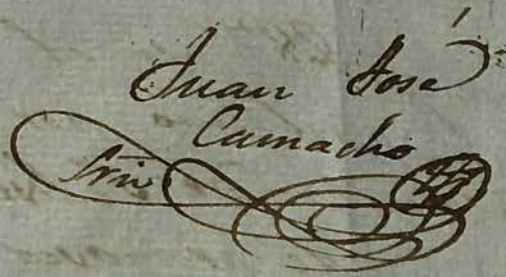 Juan José
Camacho
Srio